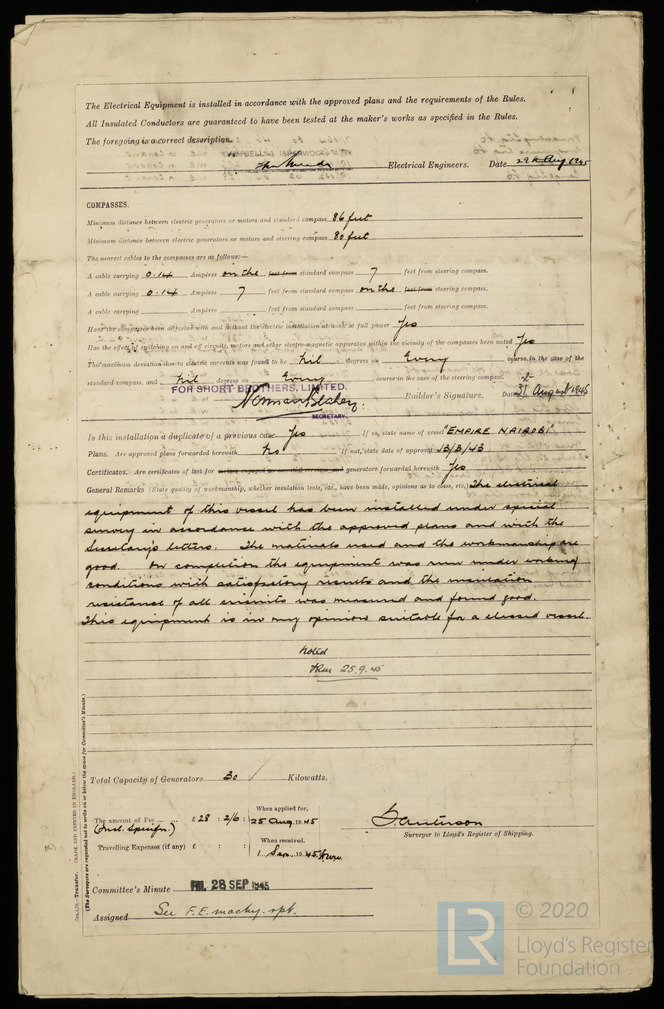 The Electrical Equipment is installed in accordance with the approved plans and the requirements of the Rules.
All Insulated Conductors are guaranteed to have been tested at the maker's works as specified in the Rules.
The foregoing is a correct description.
Electrical Engineers. Date 29th Aug 1945
COMPASSES.
Minimum distance between electric generators or motors and standard compass 86 feet
Minimum distance between electric generators or motors and steering compass 80 feet
The nearest cables to the compasses are as follows:—
A cable carrying 0.14 Ampères on the feet from standard compass 7 feet from steering compass.
A cable carrying 0.14 Ampères 7 feet from standard compass on the feet from steering compass.
A cable carrying Ampères feet from standard compass feet from steering compass.
Have the compasses been adjusted with and without the electric installation at work at full power Yes
Has the effect of switching on and off circuits, motors and other electro-magnetic apparatus within the vicinity of the compasses been noted Yes
The maximum deviation due to electric currents was found to be Nil degrees on Every course in the case of the
standard compass, and Nil degrees on Every course in the case of the steering compass.
FOR SHORT BROTHERS, LIMITED.
Builder's Signature. Date 31st August 1945
SECRETARY.
Is this installation a duplicate of a previous case Yes If so, state name of vessel "EMPIRE NAIROBI"
Plans. Are approved plans forwarded herewith No If not, state date of approval 13/3/43
Certificates. Are certificates of test for generators forwarded herewith Yes
General Remarks (State quality of workmanship, whether insulation tests, etc., have been made, opinions as to class, etc.) The electrical
equipment of this vessel has been installed under special
survey in accordance with the approved plans and with the
Secretary's letters. The materials used and the workmanship are
good. On completion the equipment was run under working
conditions with satisfactory results and the insulation
resistance of all circuits was measured and found good.
This equipment is in my opinion suitable for a classed vessel.
Noted
25.9.45
Total Capacity of Generators 30 Kilowatts.
The amount of Fee ... ... £ 28 : 2/6 :
(Incl. Specifn.)
When applied for, 25 Aug. 1945
Travelling Expenses (if any) £ : :
When received, 1 Sep. 1945
Surveyor to Lloyd's Register of Shipping.
Committee's Minute FRI. 28 SEP 1945
Assigned See F.E. machy. rpt.
Transfer. (MADE AND PRINTED IN ENGLAND.)
(The Surveyors are requested not to write on or below the space for Committee's Minute.)
LR
© 2020
Lloyd's Register
Foundation